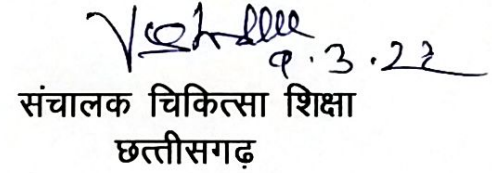 9.3.22
संचालक चिकित्सा शिक्षा
छत्तीसगढ़